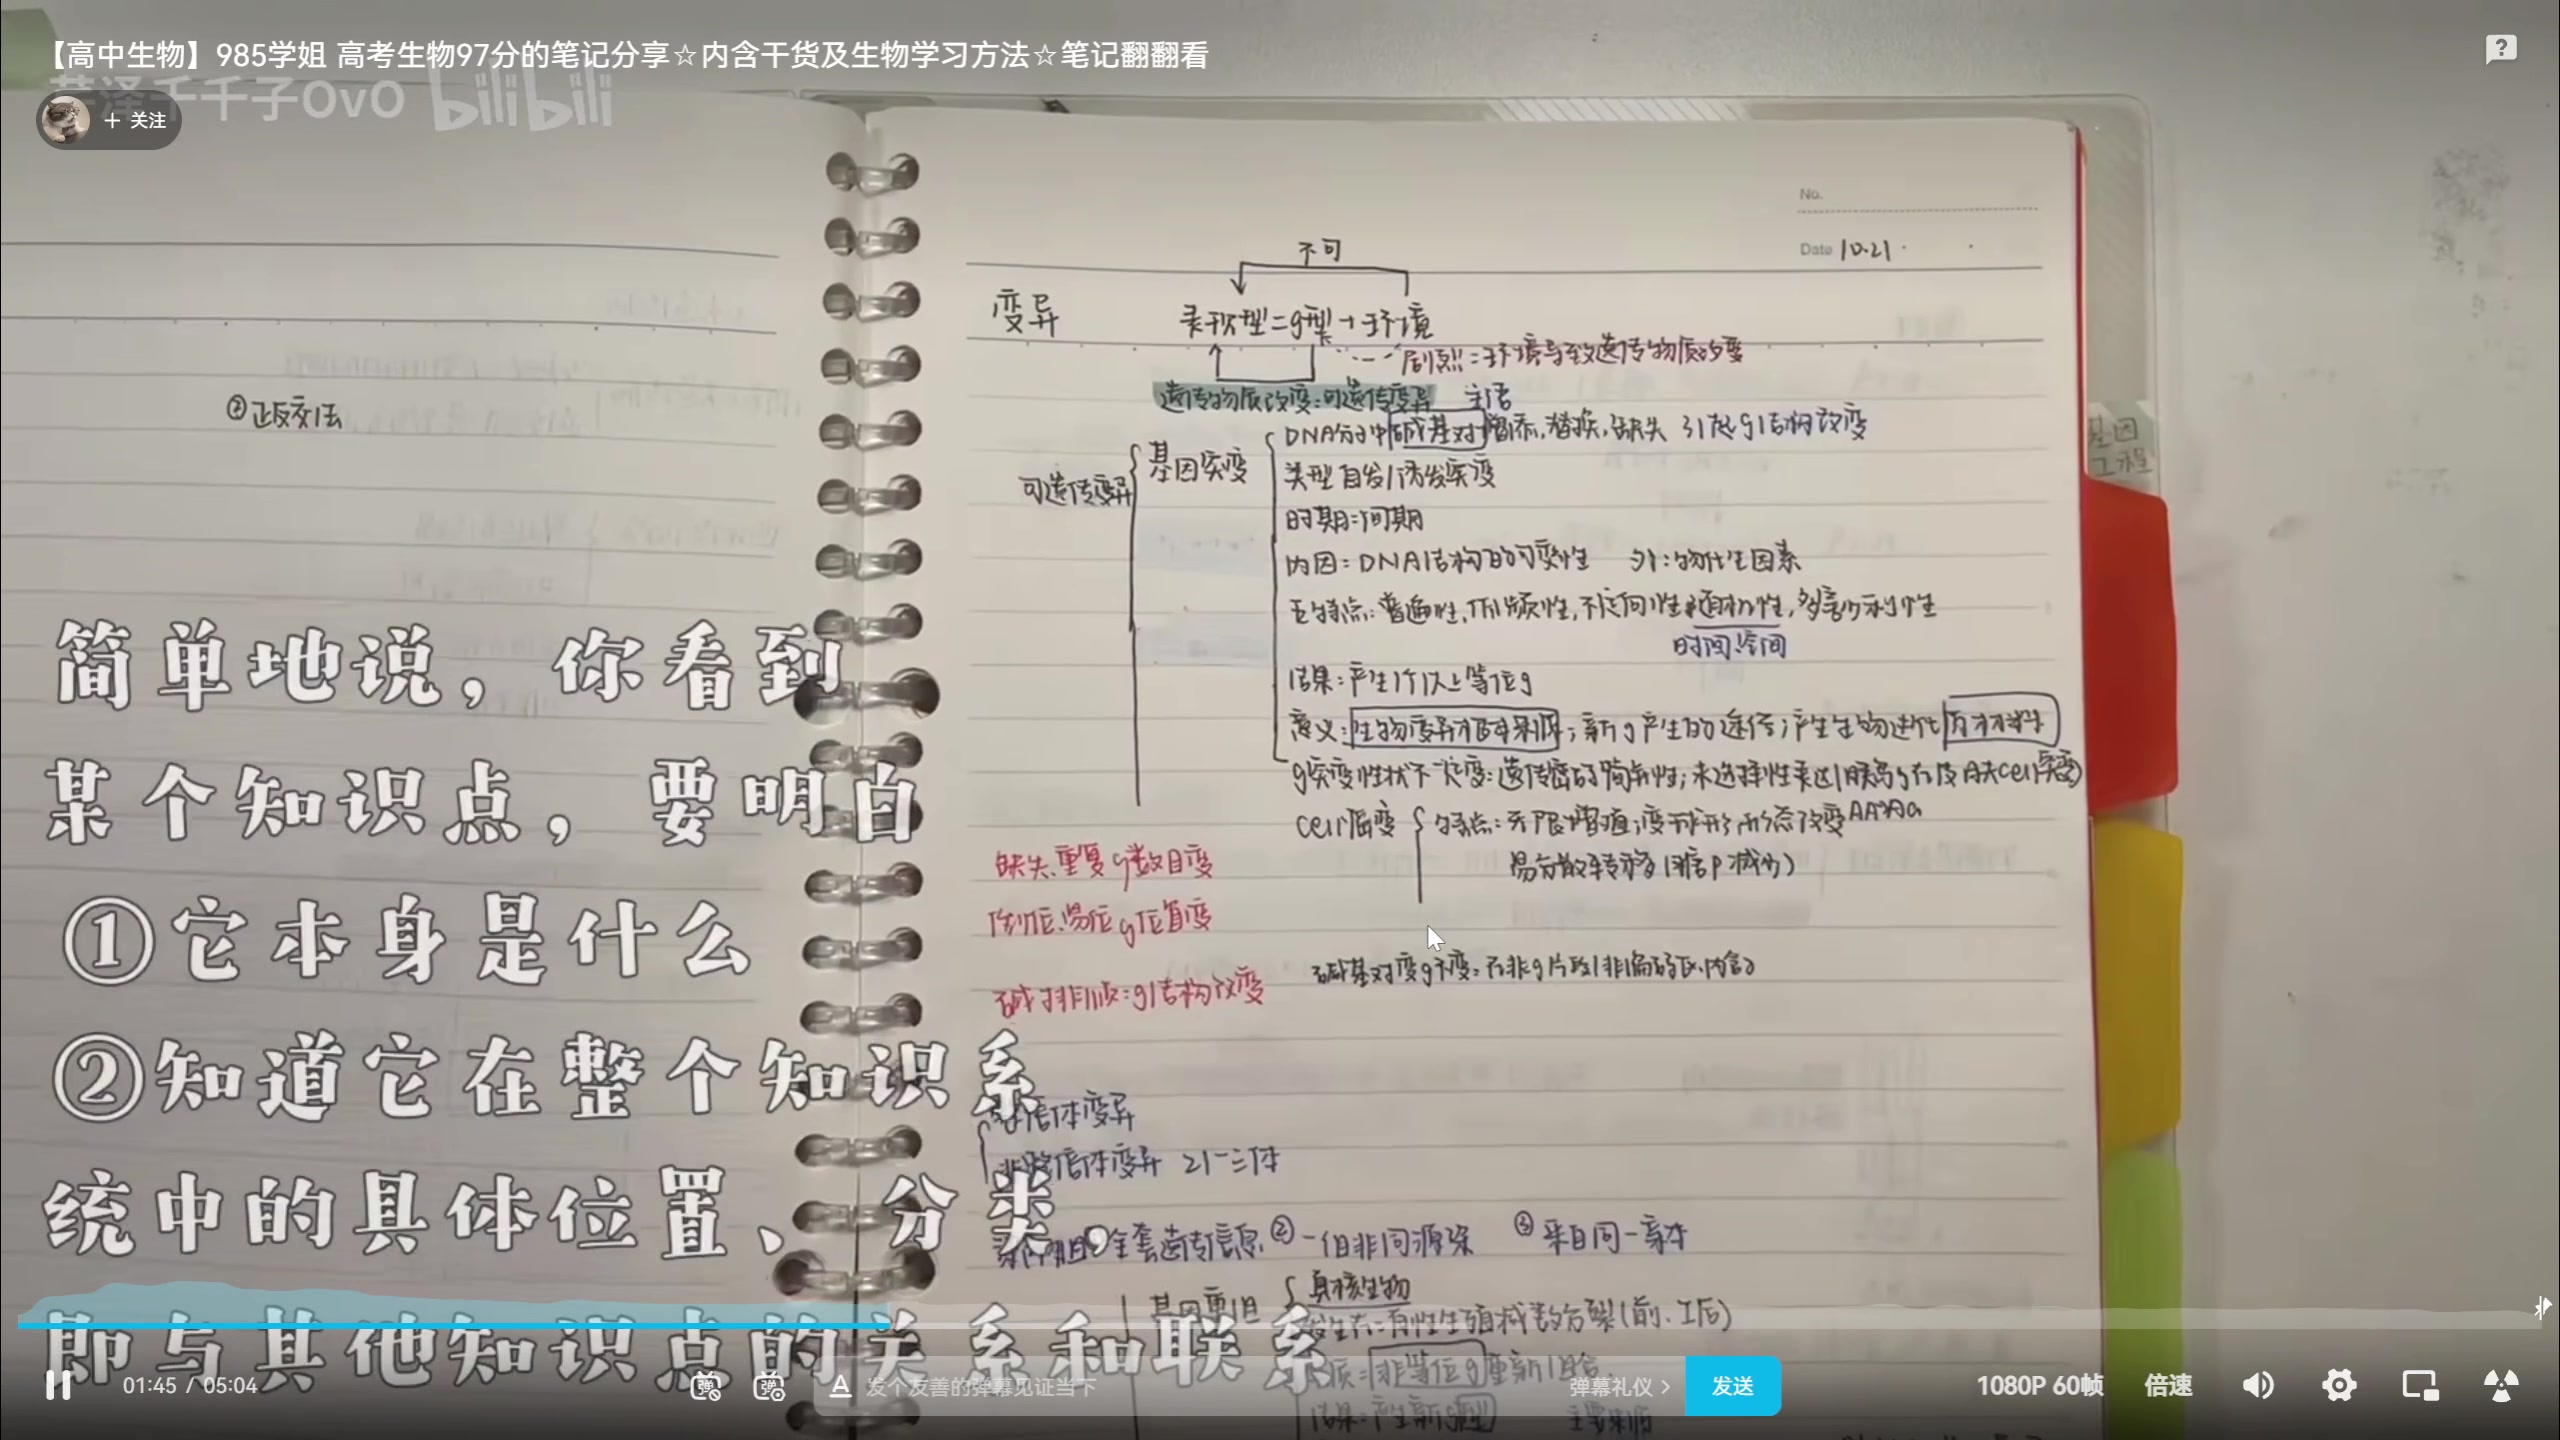 【高中生物】985学姐 高考生物97分的笔记分享☆内含干货及生物学习方法☆笔记翻翻看
千千子OvO bilibili
+ 关注
No.
Date 10.21
②正反交法
不可
变异
表现型=g型+环境
剧烈:环境导致遗传物质改变
遗传物质改变:可遗传变异
可遗传变异
基因突变
DNA分子中碱基对增添,替换,缺失 引起g结构改变
类型 自发/诱发突变
时期:间期
内因:DNA结构的可变性 外:物化生因素
特点:普遍性,低频性,不定向性,随机性,多害少利性
时间,空间
结果:产生1个以上等位g
意义:生物变异根本来源;新g产生的途径;产生生物进化原材料
g突变性状不一定变:遗传密码简并性;未选择性表达
cell癌变
特点:无限增殖;变形形态改变
AA→Aa
易分散转移(糖p减少)
缺失.重复 g数目变
倒位.易位 g位置变
碱对排顺:g结构改变
碱基对变g不变:在非g片段/非编码区.内含子
基因
工程
整倍体变异
非整倍体变异 21-三体
染色体组①全套遗传信息 ②一组非同源染 ③来自同一亲本
基因重组
真核生物
发生在:有性生殖减数分裂(前.I后)
质:非等位g重新组合
结果:产生新g型
主要来源
简单地说，你看到
某个知识点，要明白
①它本身是什么
②知道它在整个知识系
统中的具体位置、分类，
即与其他知识点的关系和联系
01:45 / 05:04
弹
弹
A 发个友善的弹幕见证当下
弹幕礼仪 >
发送
1080P 60帧
倍速